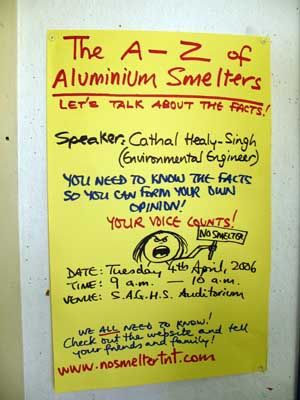 The A-Z of
Aluminium Smelters
LET'S TALK ABOUT THE FACTS!
Speaker: Cathal Healy-Singh
(Environmental Engineer)
YOU NEED TO KNOW THE FACTS
SO YOU CAN FORM YOUR OWN
OPINION!
YOUR VOICE COUNTS!
NO SMELTER
DATE: Tuesday 4th April, 2006
TIME: 9 a.m. — 10 a.m.
VENUE: S.A.G.H.S. Auditorium
WE ALL NEED TO KNOW!
Check out the website and tell
your friends and family!
www.nosmeltertnt.com